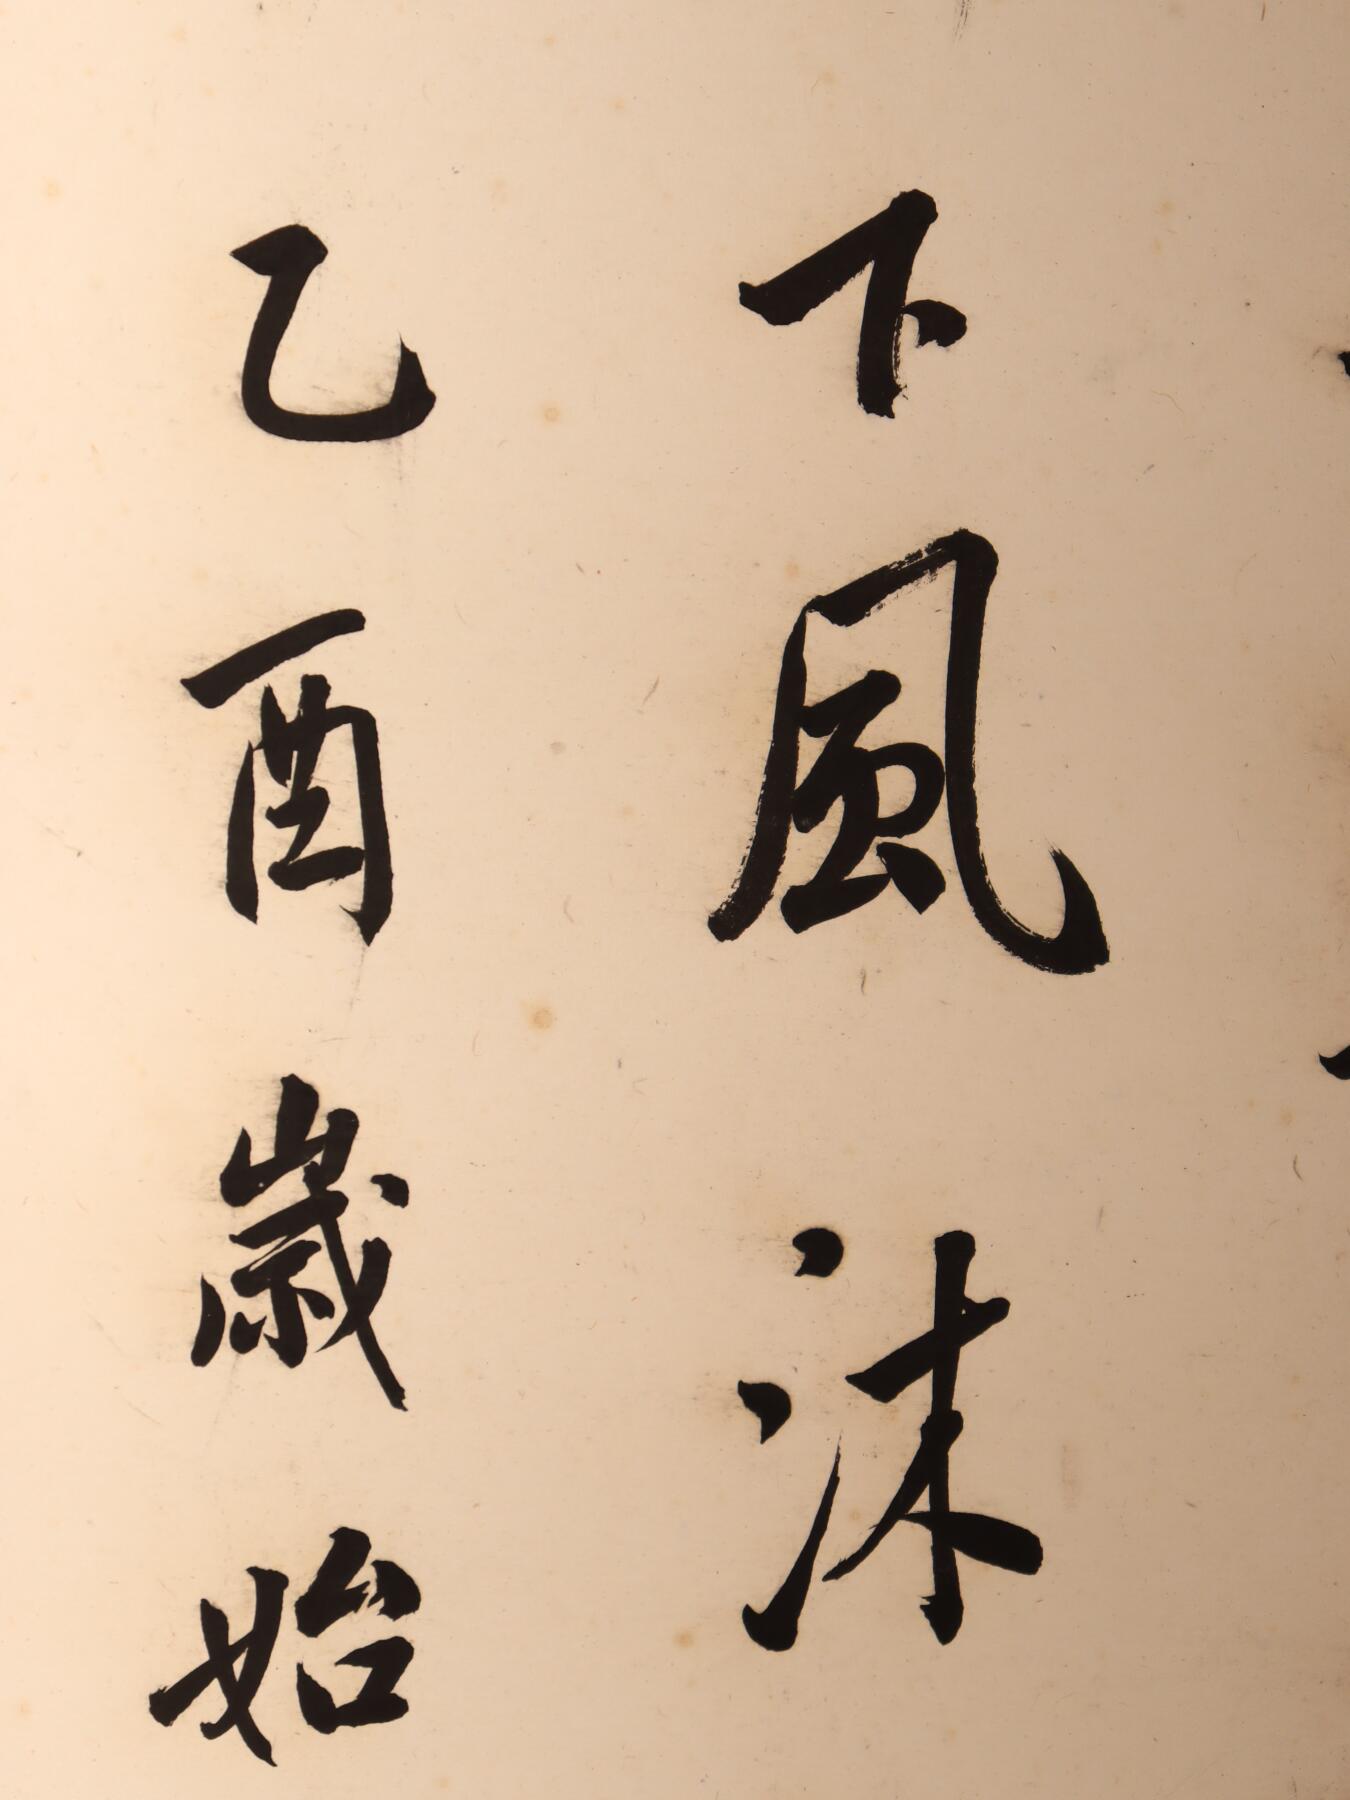 下風沐
乙酉歲始